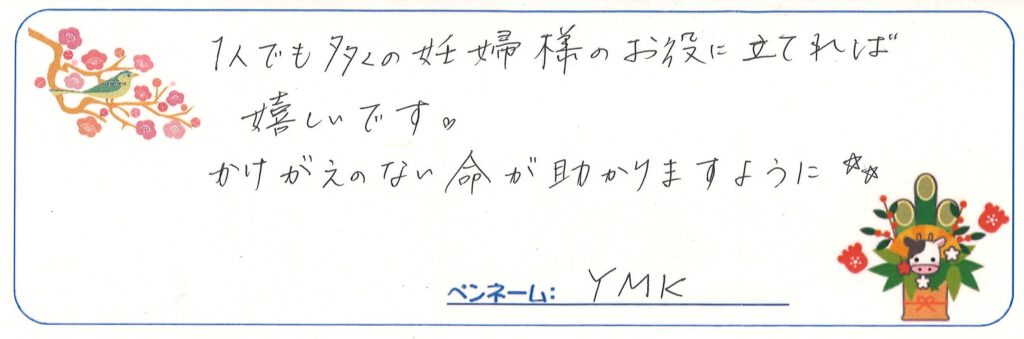 1人でも多くの妊婦様のお役に立てれば
嬉しいです。
かけがえのない命が助かりますように☆☆
ペンネーム: YMK